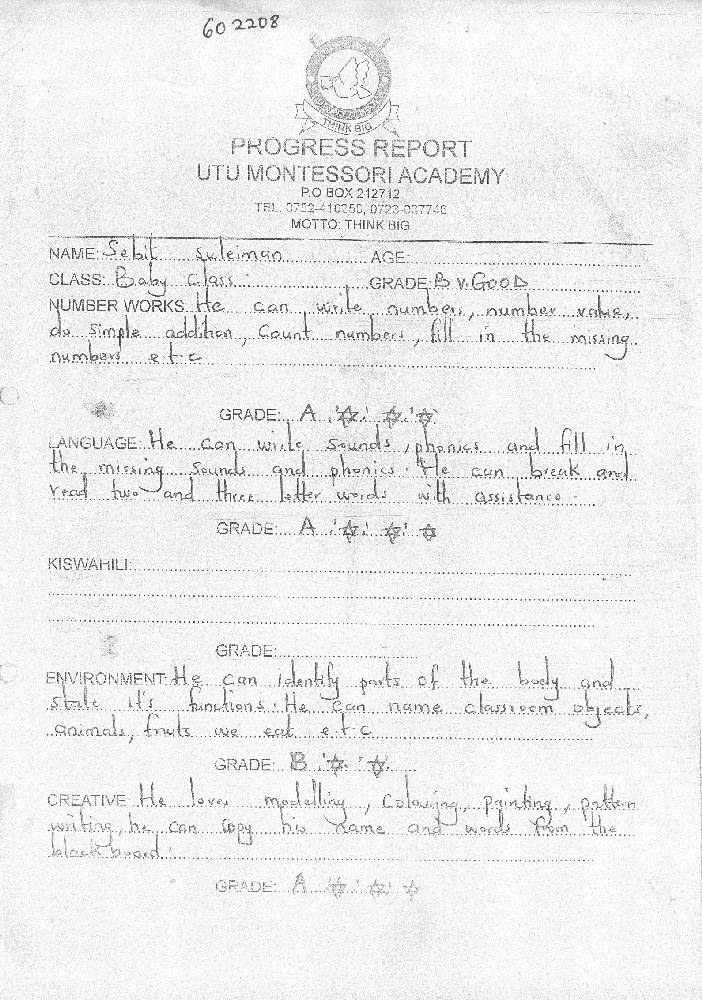 602208
THINK BIG
PROGRESS REPORT
UTU MONTESSORI ACADEMY
P.O BOX 212712
TEL. 0722-410256, 0723-037746
MOTTO: THINK BIG
NAME: Sebit Suleiman AGE:
CLASS: Baby Class GRADE: B V. GOOD
NUMBER WORKS: He can write numbers, number value,
do simple addition, Count numbers, fill in the missing
numbers e.t.c
GRADE: A
LANGUAGE: He can write sounds, phonics and fill in
the missing sounds and phonics. He can break and
read two and three letter words with assistance.
GRADE: A
KISWAHILI:
GRADE:
ENVIRONMENT: He can identify parts of the body and
state it's functions. He can name classroom objects,
animals, fruits we eat e.t.c
GRADE: B
CREATIVE: He loves modelling, Colouring, painting, pattern
writing, he can copy his name and words from the
black board.
GRADE: A